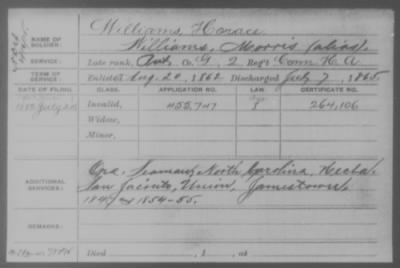 NAME OF SOLDIER:
Williams, Horace
Williams, Morris (alias).
SERVICE:
Late rank, Co. G, 2 Reg't Conn H.A.
TERM OF SERVICE:
Enlisted Aug. 20, 1862 Discharged July 7, 1865
DATE OF FILING. CLASS. APPLICATION NO. LAW. CERTIFICATE NO.
Invalid, 264,106
Widow,
Minor,
ADDITIONAL SERVICES:
Ord. Seaman, North Carolina, Hecla
San Jacinto, Union, Jamestown.
1854-55.
REMARKS:
Died , 1 , at